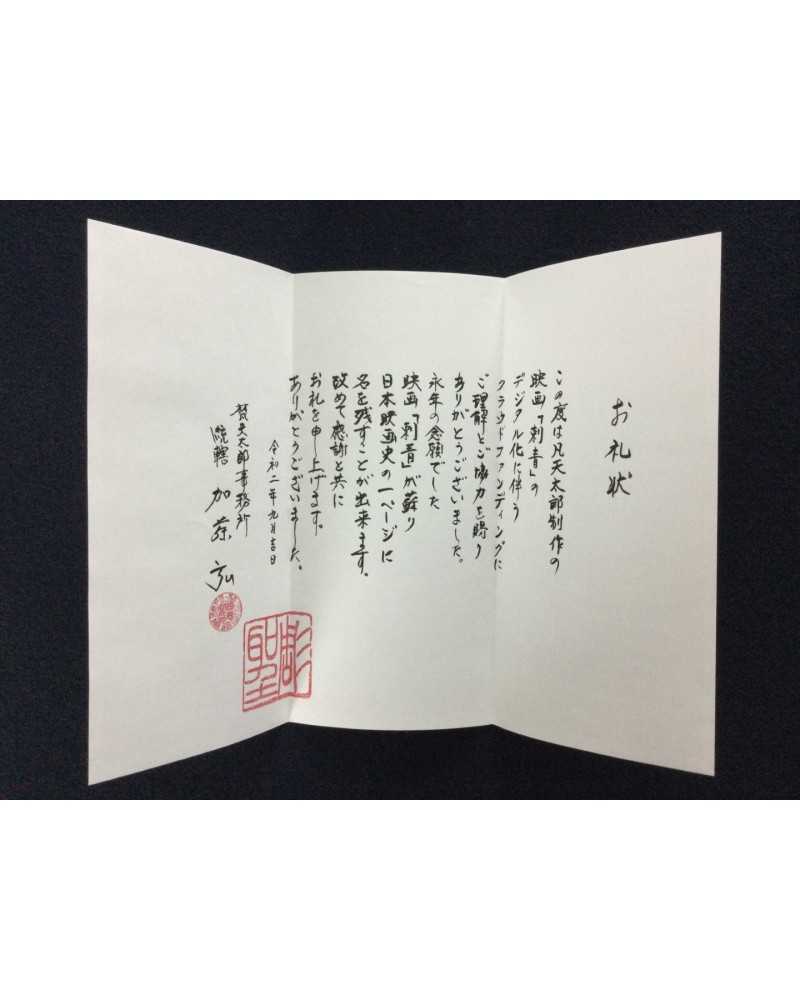 お礼状
この度は凡天太郎制作の
映画「刺青」の
デジタル化に伴う
クラウドファンディングに
ご理解とご協力を賜り
ありがとうございました。
永年の念願でした
映画「刺青」が蘇り
日本映画史の一ページに
名を残すことが出来ます。
改めて感謝と共に
お礼を申し上げます。
ありがとうございました。
令和二年九月吉日
梵天太郎事務所
統轄 加藤 弘
彫聖